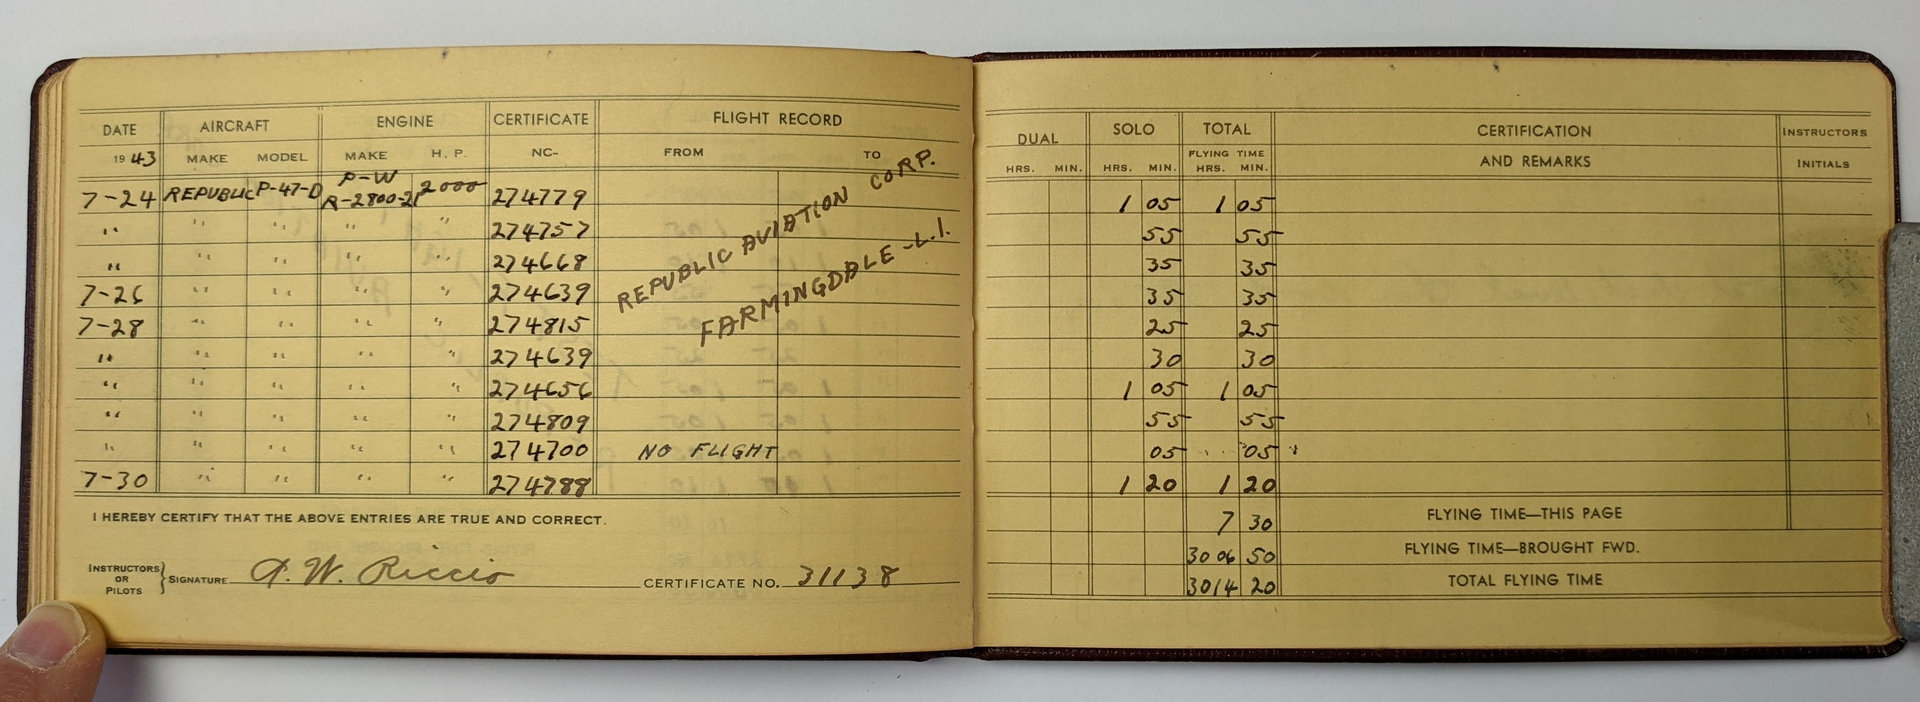 DATE AIRCRAFT ENGINE CERTIFICATE FLIGHT RECORD DUAL SOLO TOTAL CERTIFICATION INSTRUCTORS
1943 MAKE MODEL MAKE H. P. NC- FROM TO HRS. MIN. HRS. MIN. FLYING TIME HRS. MIN. AND REMARKS INITIALS
7-24 REPUBLIC P-47-D P-W R-2800-21 2000 274779 1 05 1 05
" " " " " 274757 55 55
" " " " " 274668 35 35
7-26 " " " " 274639 35 35
7-28 " " " " 274815 25 25
" " " " " 274639 30 30
" " " " " 274656 1 05 1 05
" " " " " 274809 55 55
" " " " " 274700 NO FLIGHT 05 05
7-30 " " " " 274788 1 20 1 20
REPUBLIC AVIATION CORP.
FARMINGDALE - L.I.
I HEREBY CERTIFY THAT THE ABOVE ENTRIES ARE TRUE AND CORRECT.
7 30 FLYING TIME—THIS PAGE
3006 50 FLYING TIME—BROUGHT FWD.
3014 20 TOTAL FLYING TIME
INSTRUCTORS OR PILOTS } SIGNATURE A. W. Riccio CERTIFICATE NO. 31138